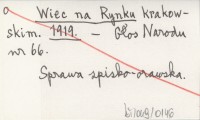 Wiec na Rynku krakow-
skim. 1919. — Głos Narodu
nr 66.
Sprawa spisko-orawska.